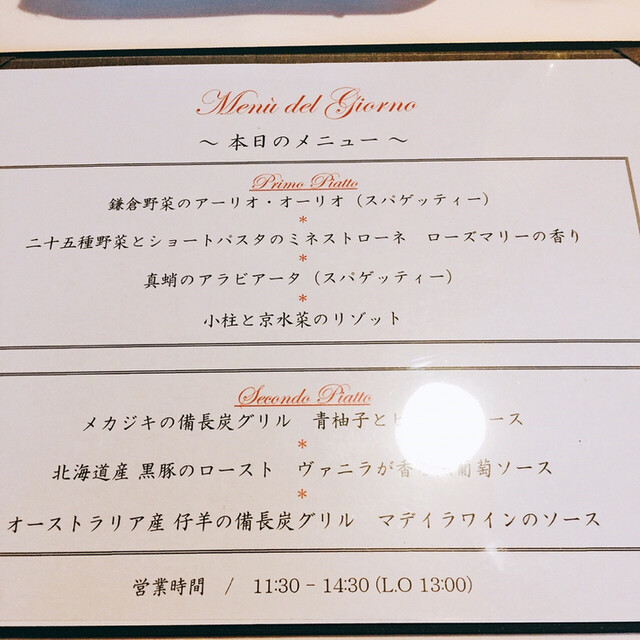 Menù del Giorno
~ 本日のメニュー ~
Primo Piatto
鎌倉野菜のアーリオ・オーリオ（スパゲッティー）
*
二十五種野菜とショートパスタのミネストローネ　ローズマリーの香り
*
真蛸のアラビアータ（スパゲッティー）
*
小柱と京水菜のリゾット
Secondo Piatto
メカジキの備長炭グリル　青柚子と ース
*
北海道産 黒豚のロースト　ヴァニラが香 葡萄ソース
*
オーストラリア産 仔羊の備長炭グリル　マデイラワインのソース
営業時間　/　11:30 - 14:30 (L.O 13:00)